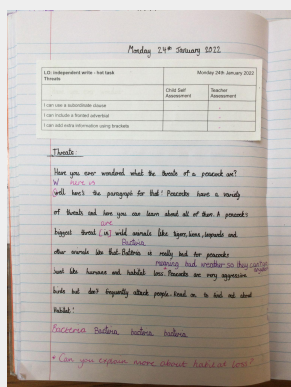 Monday 24th January 2022
LO: Independent write - hot task
Threats
Monday 24th January 2022
Child Self Assessment
Teacher Assessment
I can use a subordinate clause
I can include a fronted adverbial
I can add extra information using brackets
Threats:
Have you ever wondered what the threats of a peacock are?
W here is
(well here's the paragraph for that! Peacocks have a variety
of threats and here you can learn about all of them. A peacocks
are
biggest threat (is) wild animals like tigers, lions, leopards and
Bacteria
other animals like that. Bacteria is really bad for peacocks
meaning bad weather so they can't
just like humans and habitat loss. Peacocks are very aggressive
birds but don't frequently attack people. Read on to find out about
Habitat!
Bacteria bacteria bacteria
* Can you explain more about habitat loss?